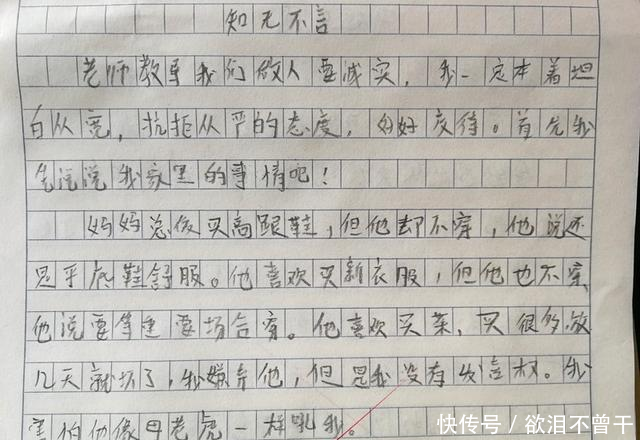 知无不言
老师教导我们做人要诚实，我一定本着坦
白从宽，抗拒从严的态度，好好交待。首先我
先说说我家里的事情吧！
妈妈总做买高跟鞋，但他却不穿，他说还
是平底鞋舒服。他喜欢买新衣服，但他也不穿，
他说要等重要场合穿。他喜欢买菜，买很多放
几天就坏了，我嫌弃他，但是我没有发言权。我
害怕他像母老虎一样吼我。
快传号／欲泪不曾干